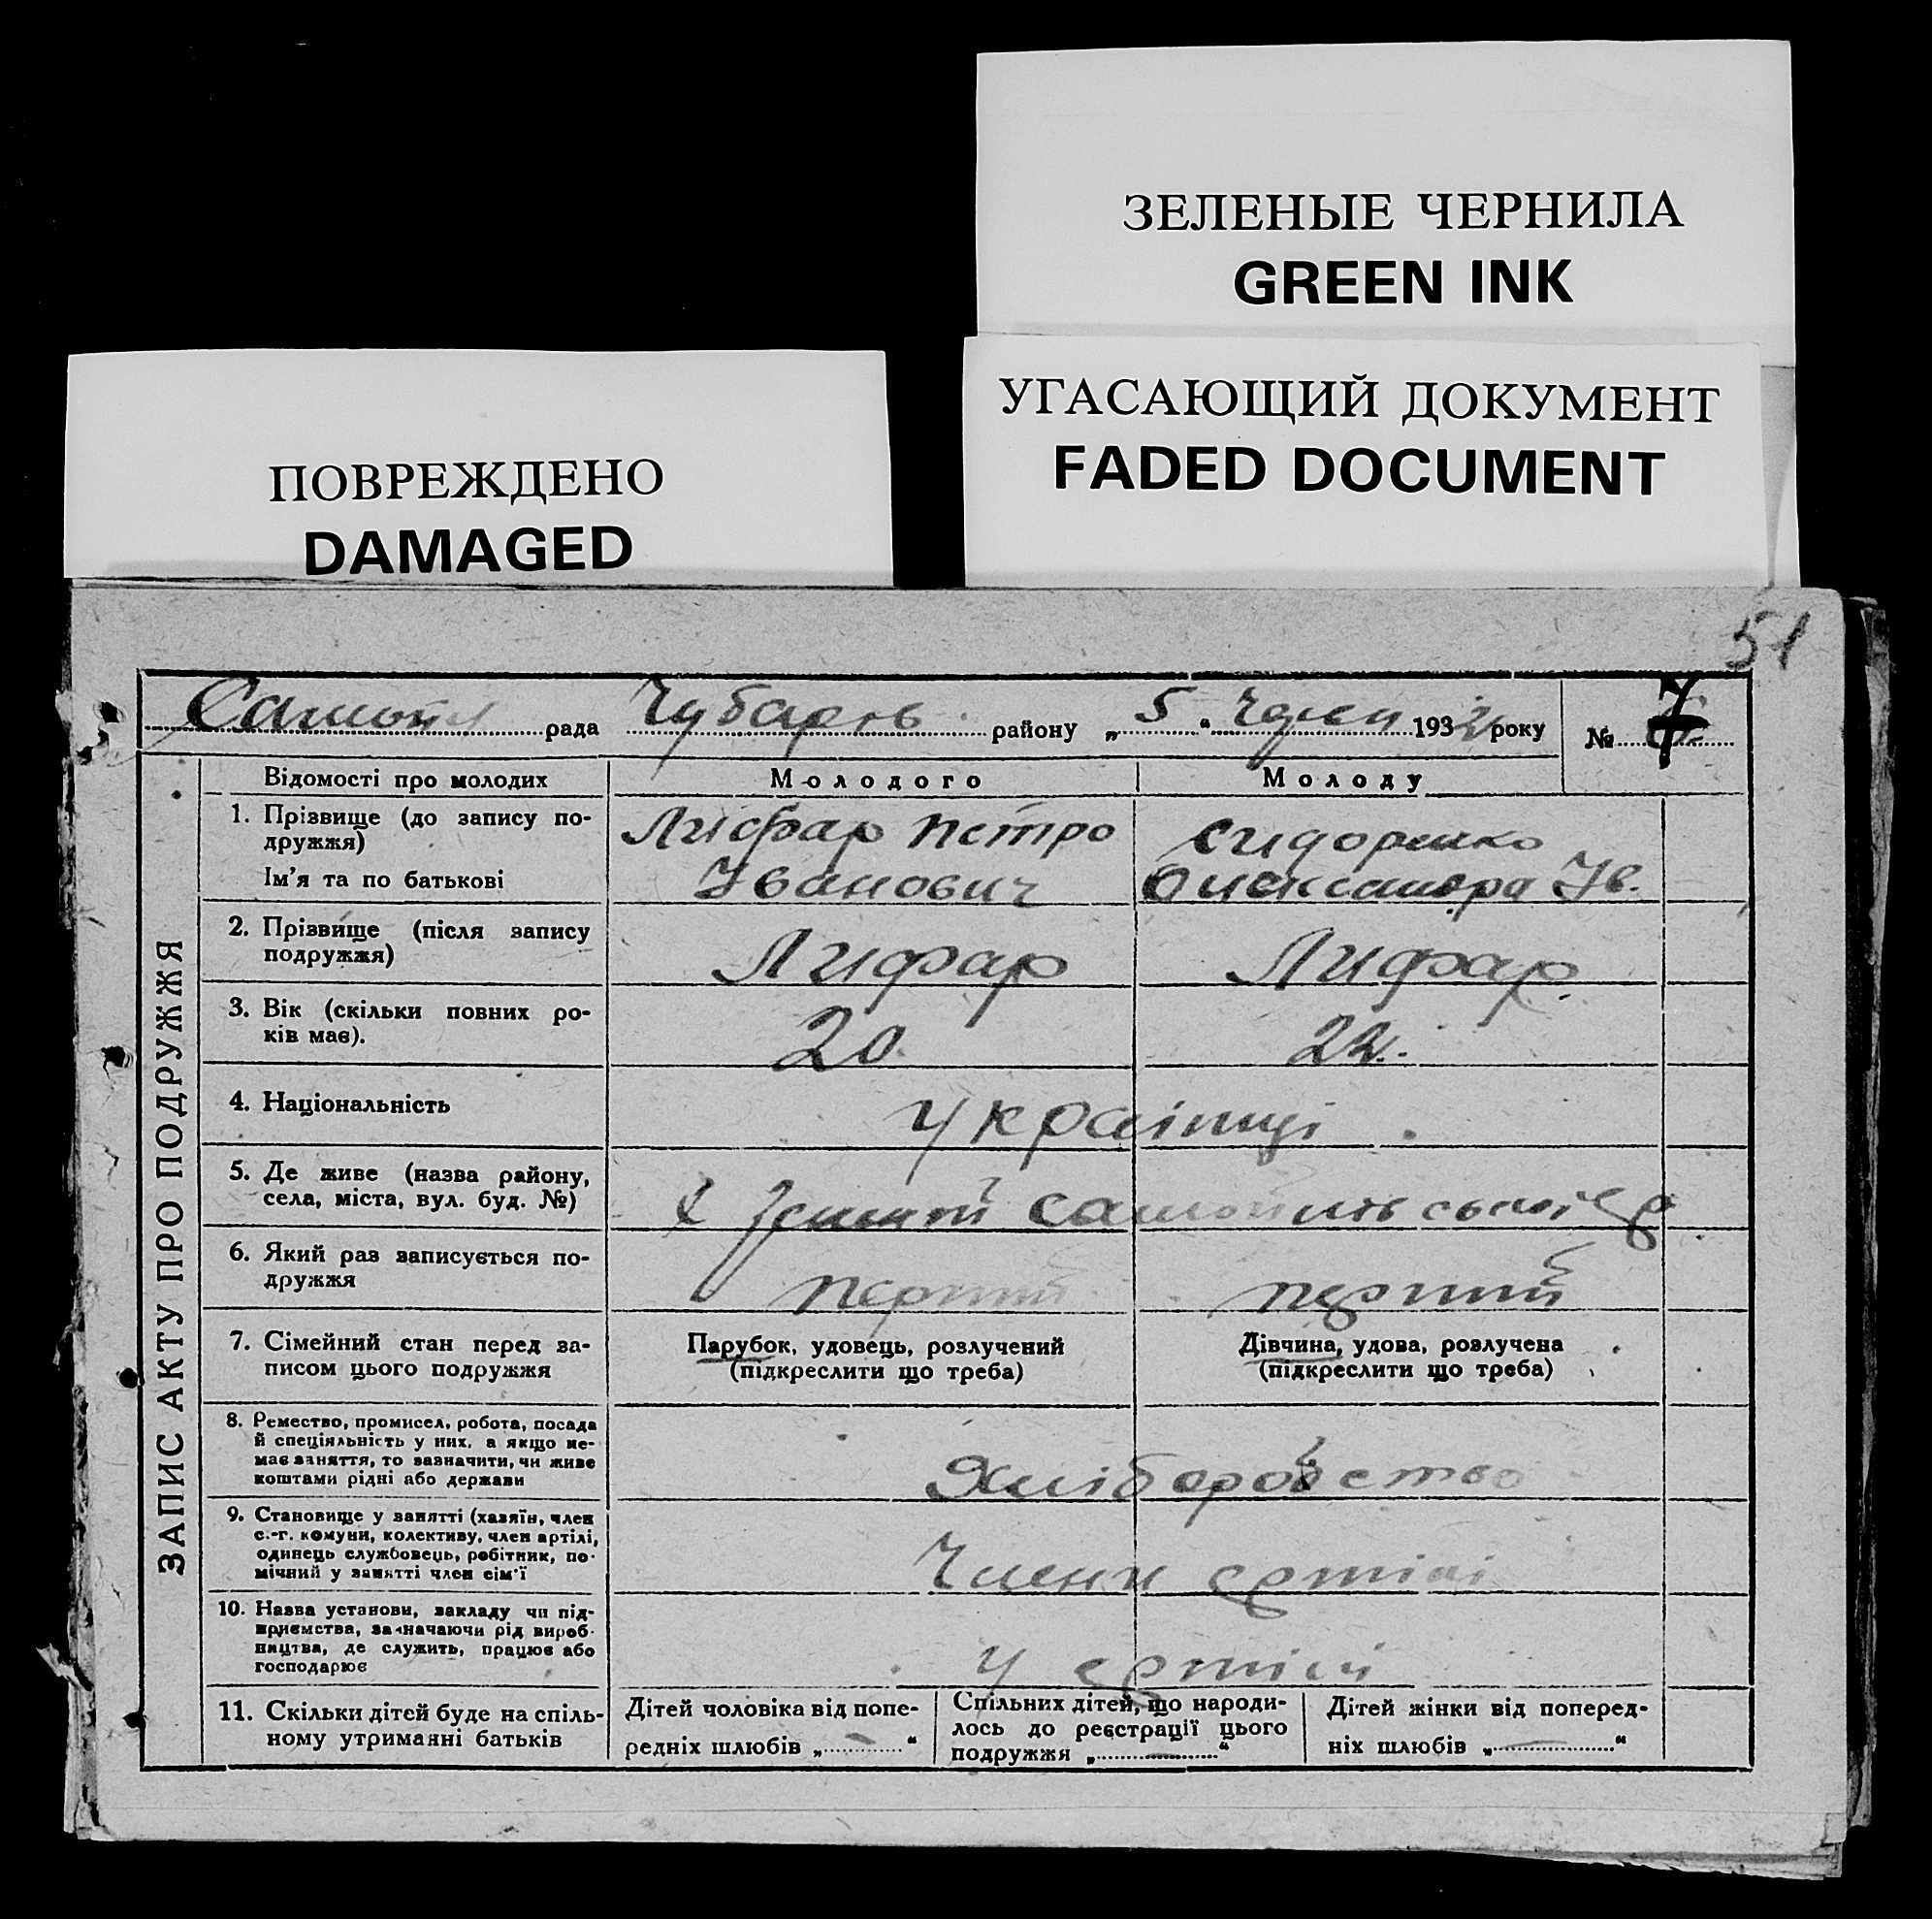 ЗЕЛЕНЫЕ ЧЕРНИЛА
GREEN INK
УГАСАЮЩИЙ ДОКУМЕНТ
FADED DOCUMENT
ПОВРЕЖДЕНО
DAMAGED
51
рада Чубарів району „5“ 1932 року № 7
ЗАПИС АКТУ ПРО ПОДРУЖЖЯ
Відомості про молодих Молодого Молоду
1. Прізвище (до запису по-
дружжя)
Ім'я та по батькові
Лифар Петро
Іванович
Сидоренко
Олександра Ів.
2. Прізвище (після запису
подружжя)
Лифар Лифар
3. Вік (скільки повних ро-
ків має).
20 22.
4. Національність
Українці
5. Де живе (назва району,
села, міста, вул. буд. №)
6. Який раз записується по-
дружжя
перший перший
7. Сімейний стан перед за-
писом цього подружжя
Парубок, удовець, розлучений
(підкреслити що треба)
Дівчина, удова, розлучена
(підкреслити що треба)
8. Ремество, промисел, робота, посада
й спеціяльність у них, а якщо не-
має заняття, то зазначити, чи живе
коштами рідні або держави
Хліборобство
9. Становище у занятті (хазяїн, член
с.-г. комуни, колективу, член артілі,
одинець службовець, робітник, по-
мічний у занятті член сім'ї
Члени артілі
10. Назва установи, закладу чи під-
приємства, зазначаючи рід вироб-
ництва, де служить, працює або
господарює
У артілі
11. Скільки дітей буде на спіль-
ному утриманні батьків
Дітей чоловіка від попе-
редніх шлюбів „—“
Спільних дітей, що народи-
лось до реєстрації цього
подружжя „—“
Дітей жінки від поперед-
ніх шлюбів „—“